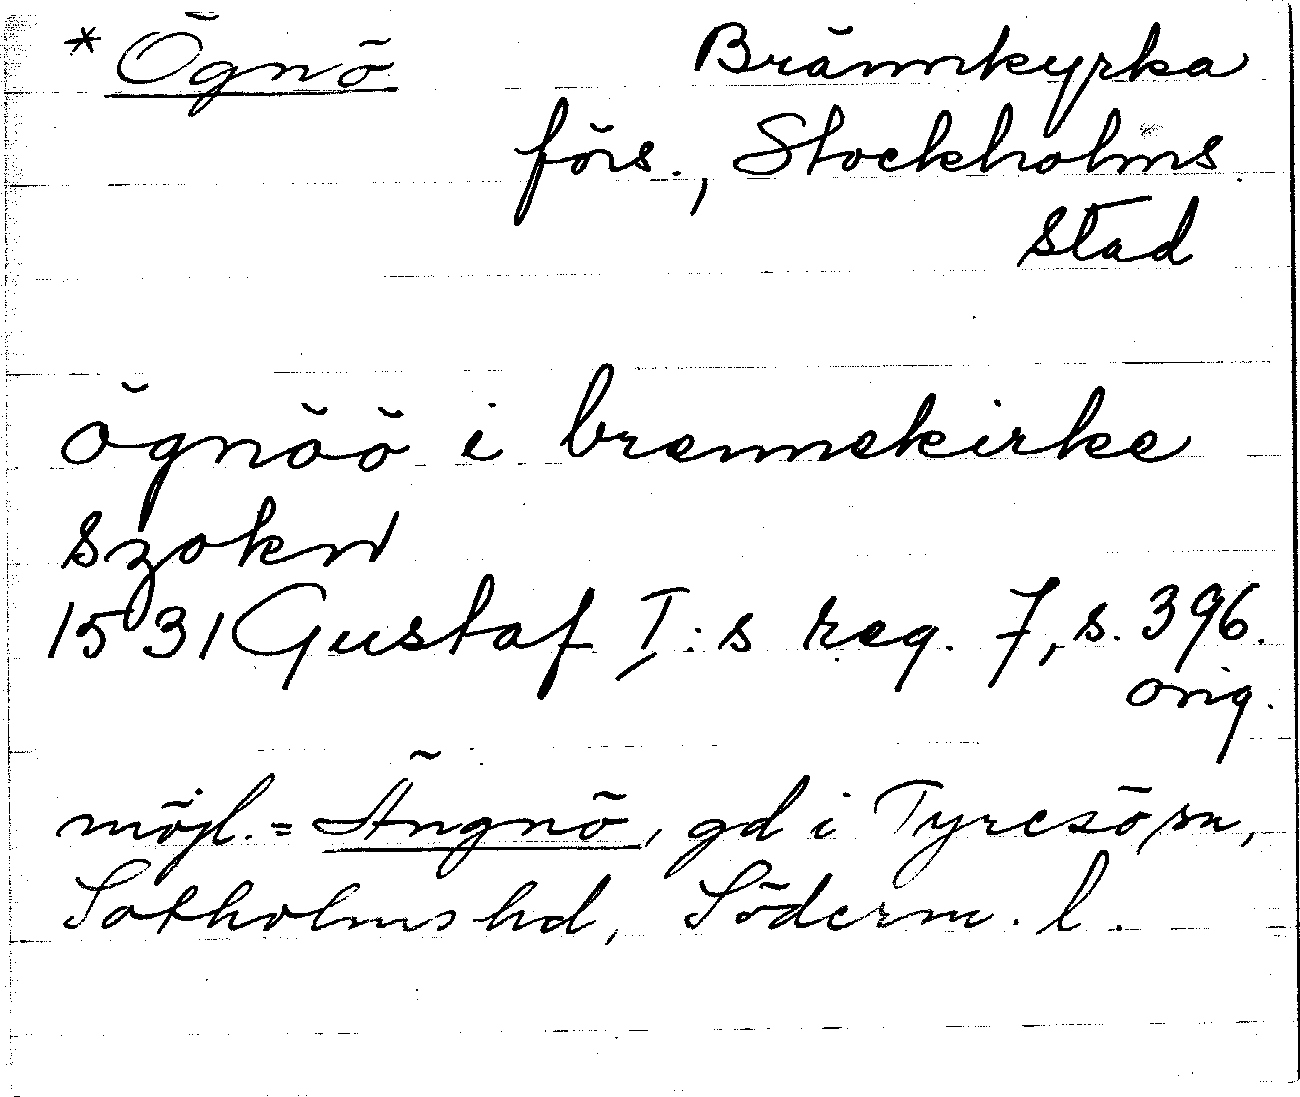 *Ögnö Brännkyrka
förs., Stockholms
stad
ögnöö i brennekirke
szokn
1531 Gustaf I:s reg. 7, s. 396.
orig.
möjl. = Ängnö, gd i Tyresö sn,
Sotholms hd, Söderm. l.